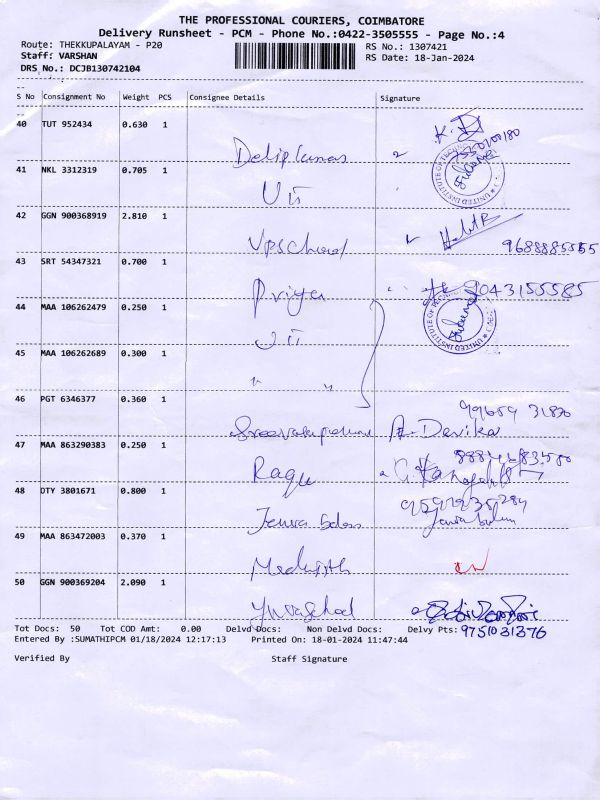 THE PROFESSIONAL COURIERS, COIMBATORE
Delivery Runsheet - PCM - Phone No.:0422-3505555 - Page No.:4
Route: THEKKUPALAYAM - P20
RS No.: 1307421
Staff: VARSHAN
RS Date: 18-Jan-2024
DRS No.: DCJB130742104
S No Consignment No Weight PCS Consignee Details Signature
40 TUT 952434 0.630 1
Delip Kumar
41 NKL 3312319 0.705 1
42 GGN 900368919 2.810 1
9688885555
43 SRT 54347321 0.700 1
Priya 9043155585
44 MAA 106262479 0.250 1
45 MAA 106262689 0.300 1
" "
46 PGT 6346377 0.360 1
A. Devika
47 MAA 863290383 0.250 1
Ragu
48 DTY 3801671 0.800 1
49 MAA 863472003 0.370 1
50 GGN 900369204 2.090 1
Tot Docs: 50 Tot COD Amt: 0.00 Delvd Docs: Non Delvd Docs: Delvy Pts: 9751031376
Entered By :SUMATHIPCM 01/18/2024 12:17:13 Printed On: 18-01-2024 11:47:44
Verified By Staff Signature